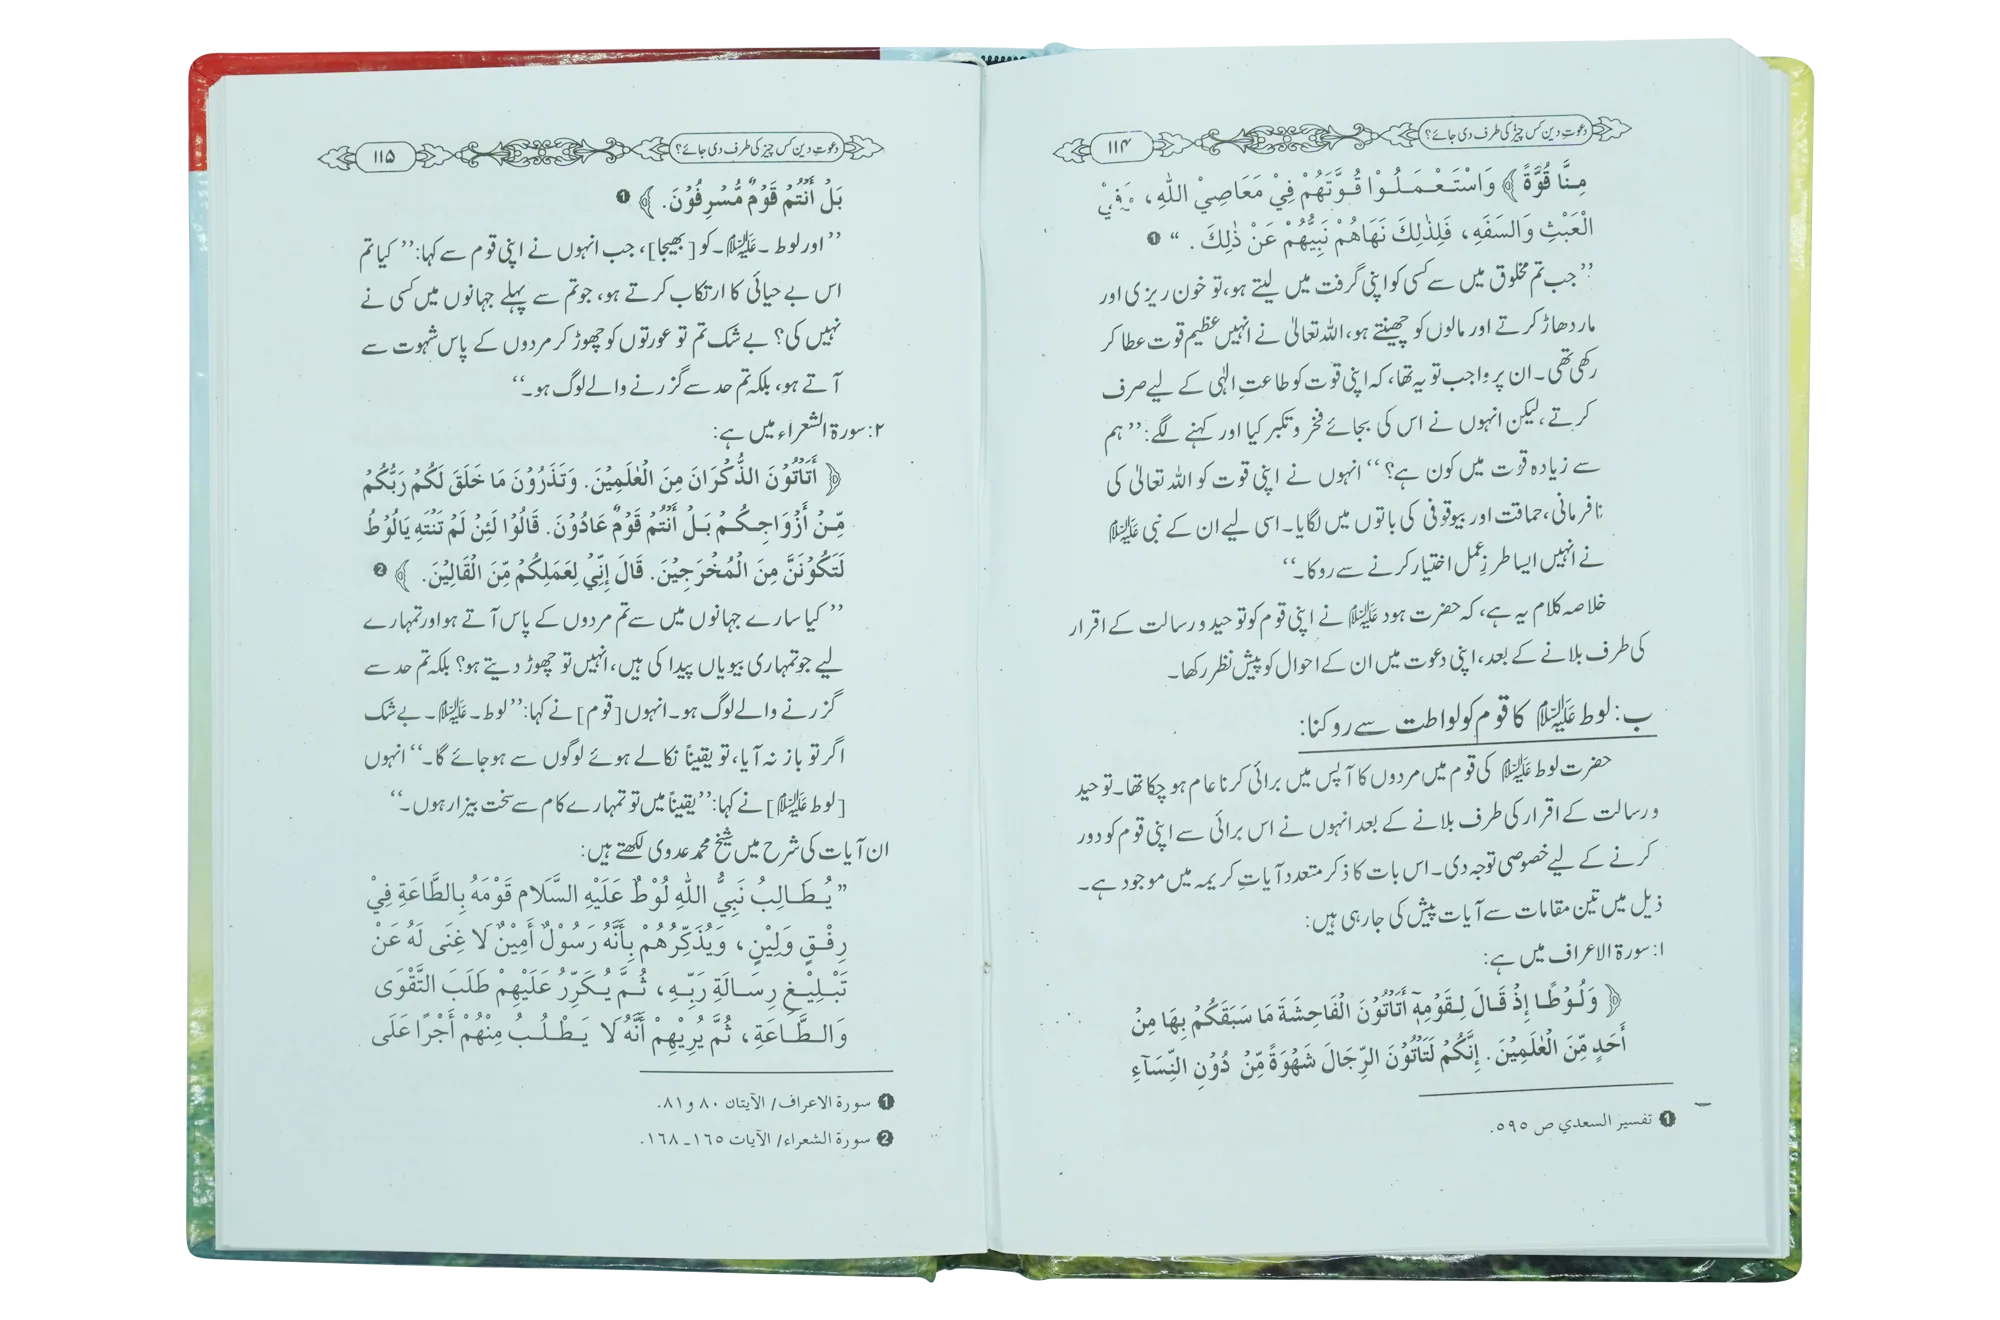 دعوتِ دین کس چیز کی طرف دی جائے؟
۱۱۴
مِنَّا قُوَّةً ﴾ وَاسْتَعْمَلُوْا قُوَّتَهُمْ فِيْ مَعَاصِيْ اللّٰهِ، وَفِيْ
الْعَبْثِ وَالسَفَهِ، فَلِذٰلِكَ نَهَاهُمْ نَبِيُّهُمْ عَنْ ذٰلِكَ . ‘‘ ❶
’’جب تم مخلوق میں سے کسی کو اپنی گرفت میں لیتے ہو، تو خون ریزی اور
مار دھاڑ کرتے اور مالوں کو چھینتے ہو، اللہ تعالیٰ نے انہیں عظیم قوت عطا کر
رکھی تھی۔ ان پر واجب تو یہ تھا، کہ اپنی قوت کو طاعتِ الٰہی کے لیے صرف
کرتے، لیکن انہوں نے اس کی بجائے فخر و تکبر کیا اور کہنے لگے: ’’ہم
سے زیادہ قوت میں کون ہے؟‘‘ انہوں نے اپنی قوت کو اللہ تعالیٰ کی
نافرمانی، حماقت اور بیوقوفی کی باتوں میں لگایا۔ اسی لیے ان کے نبی علیہ السلام
نے انہیں ایسا طرزِ عمل اختیار کرنے سے روکا۔‘‘
خلاصہ کلام یہ ہے، کہ حضرت ہود علیہ السلام نے اپنی قوم کو توحید و رسالت کے اقرار
کی طرف بلانے کے بعد، اپنی دعوت میں ان کے احوال کو پیش نظر رکھا۔
ب: لوط علیہ السلام کا قوم کو لواطت سے روکنا:
حضرت لوط علیہ السلام کی قوم میں مردوں کا آپس میں برائی کرنا عام ہو چکا تھا۔ توحید
و رسالت کے اقرار کی طرف بلانے کے بعد انہوں نے اس برائی سے اپنی قوم کو دور
کرنے کے لیے خصوصی توجہ دی۔ اس بات کا ذکر متعدد آیاتِ کریمہ میں موجود ہے۔
ذیل میں تین مقامات سے آیات پیش کی جا رہی ہیں:
۱: سورۃ الاعراف میں ہے:
﴿ وَلُوْطًا إِذْ قَالَ لِقَوْمِهٖٓ أَتَاْتُوْنَ الْفَاحِشَةَ مَا سَبَقَكُمْ بِهَا مِنْ
أَحَدٍ مِّنَ الْعٰلَمِيْنَ. إِنَّكُمْ لَتَاْتُوْنَ الرِّجَالَ شَهْوَةً مِّنْ دُوْنِ النِّسَآءِ
❶ تفسير السعدي ص ٥٩٥.
دعوتِ دین کس چیز کی طرف دی جائے؟
۱۱۵
بَلْ أَنْتُمْ قَوْمٌ مُّسْرِفُوْنَ. ﴾ ❶
’’اور لوط ۔علیہ السلام۔ کو [بھیجا]، جب انہوں نے اپنی قوم سے کہا: ’’کیا تم
اس بے حیائی کا ارتکاب کرتے ہو، جو تم سے پہلے جہانوں میں کسی نے
نہیں کی؟ بے شک تم تو عورتوں کو چھوڑ کر مردوں کے پاس شہوت سے
آتے ہو، بلکہ تم حد سے گزرنے والے لوگ ہو۔‘‘
۲: سورۃ الشعراء میں ہے:
﴿ أَتَاْتُوْنَ الذُّكْرَانَ مِنَ الْعٰلَمِيْنَ. وَتَذَرُوْنَ مَا خَلَقَ لَكُمْ رَبُّكُمْ
مِّنْ أَزْوَاجِكُمْ بَلْ أَنْتُمْ قَوْمٌ عَادُوْنَ. قَالُوْا لَئِنْ لَّمْ تَنْتَهِ يَالُوْطُ
لَتَكُوْنَنَّ مِنَ الْمُخْرَجِيْنَ. قَالَ إِنِّيْ لِعَمَلِكُمْ مِّنَ الْقَالِيْنَ. ﴾ ❷
’’کیا سارے جہانوں میں سے تم مردوں کے پاس آتے ہو اور تمہارے
لیے جو تمہاری بیویاں پیدا کی ہیں، انہیں تو چھوڑ دیتے ہو؟ بلکہ تم حد سے
گزرنے والے لوگ ہو۔ انہوں [قوم] نے کہا: ’’لوط ۔علیہ السلام۔ بے شک
اگر تو باز نہ آیا، تو یقیناً نکالے ہوئے لوگوں سے ہو جائے گا۔‘‘ انہوں
[لوط علیہ السلام] نے کہا: ’’یقیناً میں تو تمہارے کام سے سخت بیزار ہوں۔‘‘
ان آیات کی شرح میں شیخ محمد عدوی لکھتے ہیں:
’’يُطَالِبُ نَبِيُّ اللّٰهِ لُوْطٌ عَلَيْهِ السَّلَام قَوْمَهُ بِالطَّاعَةِ فِيْ
رِفْقٍ وَلِيْنٍ، وَيُذَكِّرُهُمْ بِأَنَّهُ رَسُوْلٌ أَمِيْنٌ لَا غِنَى لَهُ عَنْ
تَبْلِيْغِ رِسَالَةِ رَبِّهِ، ثُمَّ يُكَرِّرُ عَلَيْهِمْ طَلَبَ التَّقْوَى
وَالطَّاعَةِ، ثُمَّ يُرِيْهِمْ أَنَّهُ لَا يَطْلُبُ مِنْهُمْ أَجْرًا عَلَى
❶ سورة الاعراف/ الآيتان ٨٠ و٨١.
❷ سورة الشعراء/ الآيات ١٦٥ـ١٦٨.